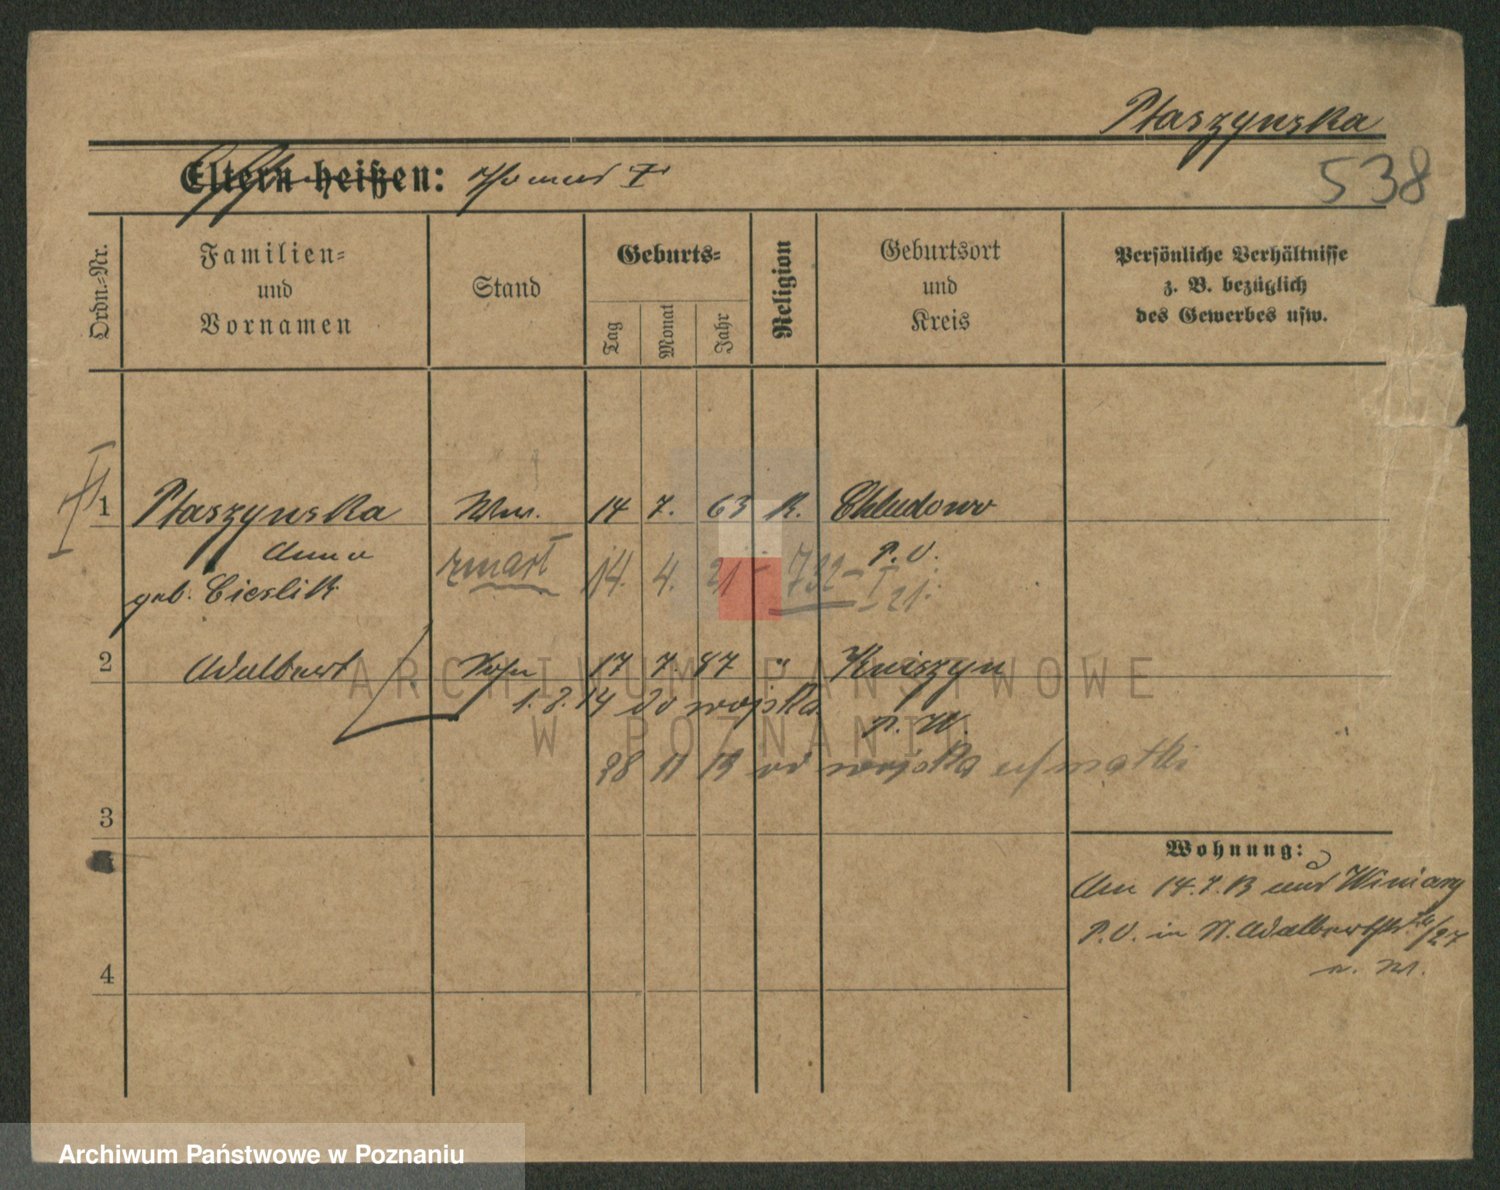 Ptaszynska
538
Eltern heißen: Thomas
Ordn.-Nr.
Familien-
und
Vornamen
Stand
Geburts-
Tag
Monat
Jahr
Religion
Geburtsort
und
Kreis
Persönliche Verhältnisse
z. B. bezüglich
des Gewerbes usw.
1 Ptaszynska Ww. 14 7. 63 K. Chludowo
Anna P. O.
geb. Cieslik
zmarł 14. 4. 21 732 I 21.
2 Adalbert Sohn 17 7. 87 " Knieszyn
1. 8. 14 do wojska
P. W.
28 11 18 od wojska matki
3
4
Wohnung:
Am 14. 7. 13 aus Winiary
P. O. in St. Adalbertstr. /27
ARCHIWUM PAŃSTWOWE
W POZNANIU
Archiwum Państwowe w Poznaniu